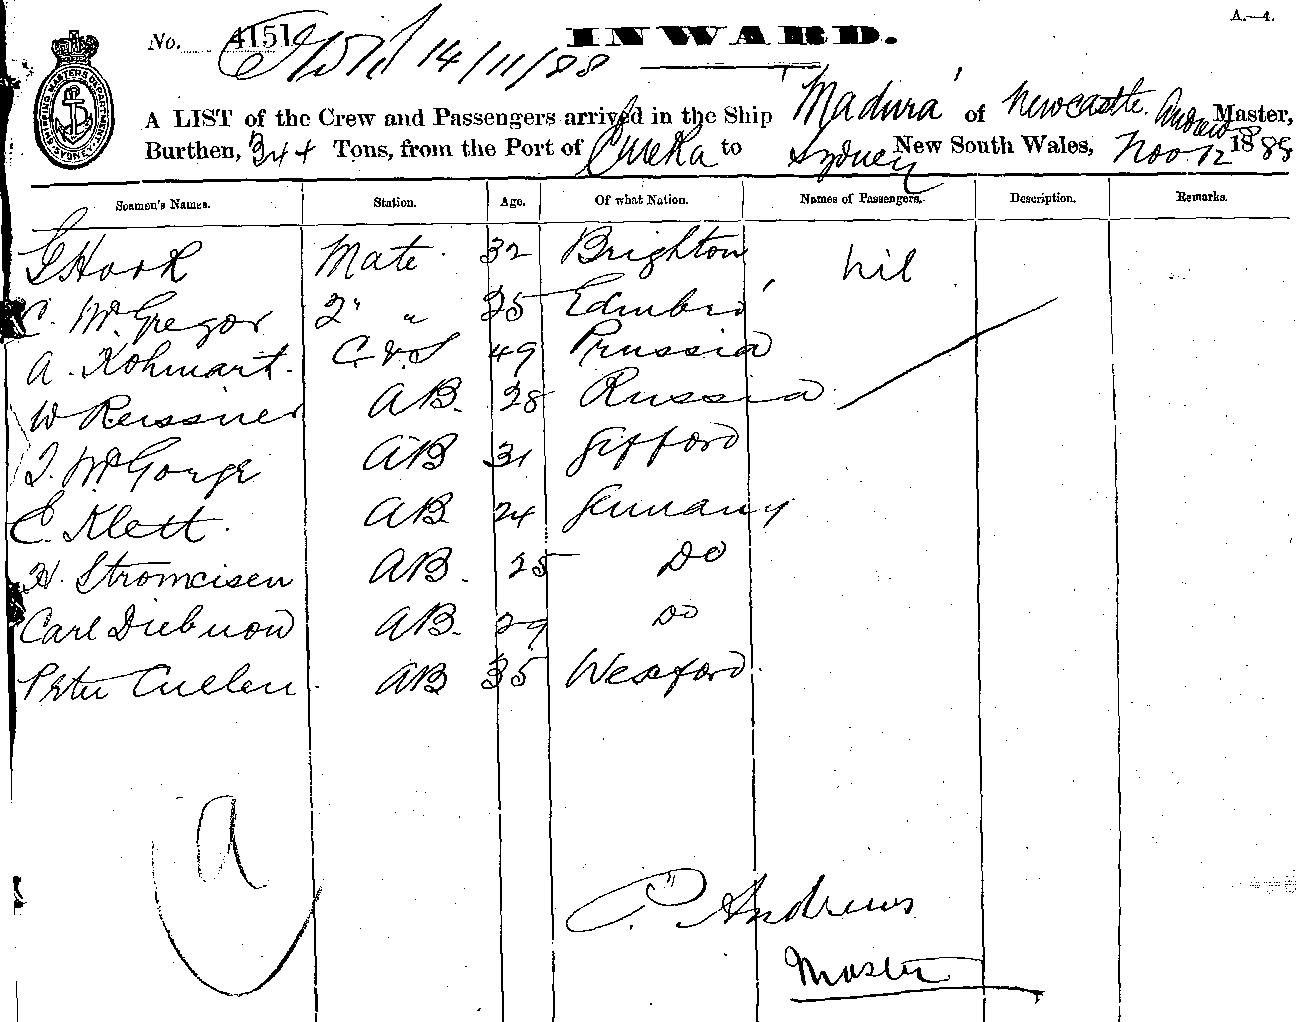 A.—4.
No. 4151 INWARD.
14/11/88
SHIPPING MASTERS DEPARTMENT SYDNEY
A LIST of the Crew and Passengers arrived in the Ship "Madura" of Newcastle. Andrews Master,
Burthen, 344 Tons, from the Port of Eureka to Sydney New South Wales, Nov 12 1888
Seamen's Names. Station. Age. Of what Nation. Names of Passengers. Description. Remarks.
G Hook Mate 32 Brighton nil
C. McGregor 2" " 25 Edinbro
A. Kohmart. C & S 49 Prussia
W Reissner AB. 28 Russia
J. McGorge AB 31 Gifford
E. Klett. AB 24 Germany
H. Stromeisen AB. 25 Do
Carl Diebnow AB. 29 Do
Peter Cullen. AB 35 Wexford.
a
P Andrews
Master